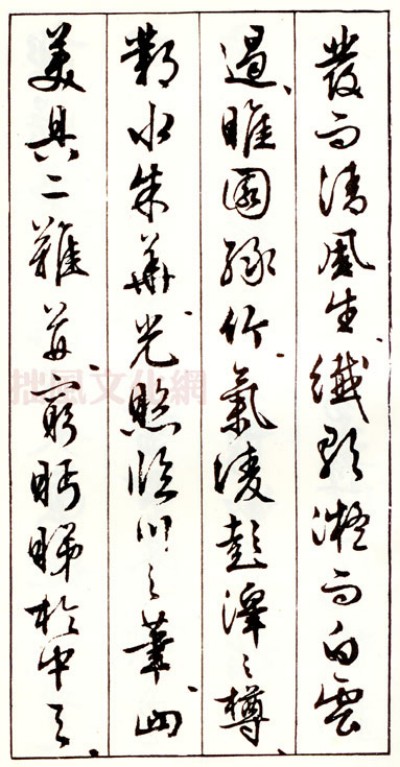 發而清風生纖歌凝而白雲
遏睢園綠竹氣凌彭澤之樽
鄴水朱華光照臨川之筆四
美具二難並窮睇眄於中天
拙風文化網